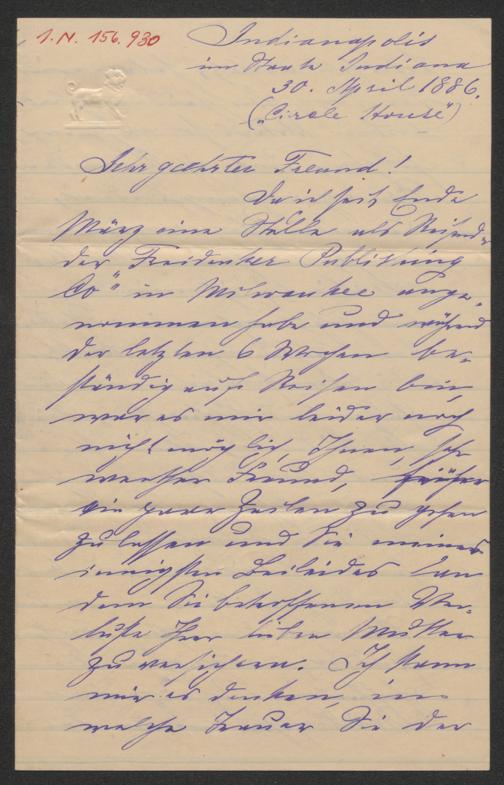 I.N. 156.930
Indianapolis
im Staate Indiana
30. April 1886.
("Circle House")
Sehr geehrter Freund!
Da ich seit Ende
März eine Stelle als Reisender
der Freidenker Publishing
Co" in Milwaukee ange-
nommen habe und während
der letzten 6 Wochen be-
ständig auf Reisen bin,
war es mir leider noch
nicht möglich, Ihnen, sehr
werther Freund, früher
ein paar Zeilen zu gehen
zu lassen und Sie meines
innigsten Beileides
dem Sie betroffenen Ver-
luste Ihrer lieben Mutter
zu versichern. Ich kann
mir es denken, in
welche Trauer Sie der